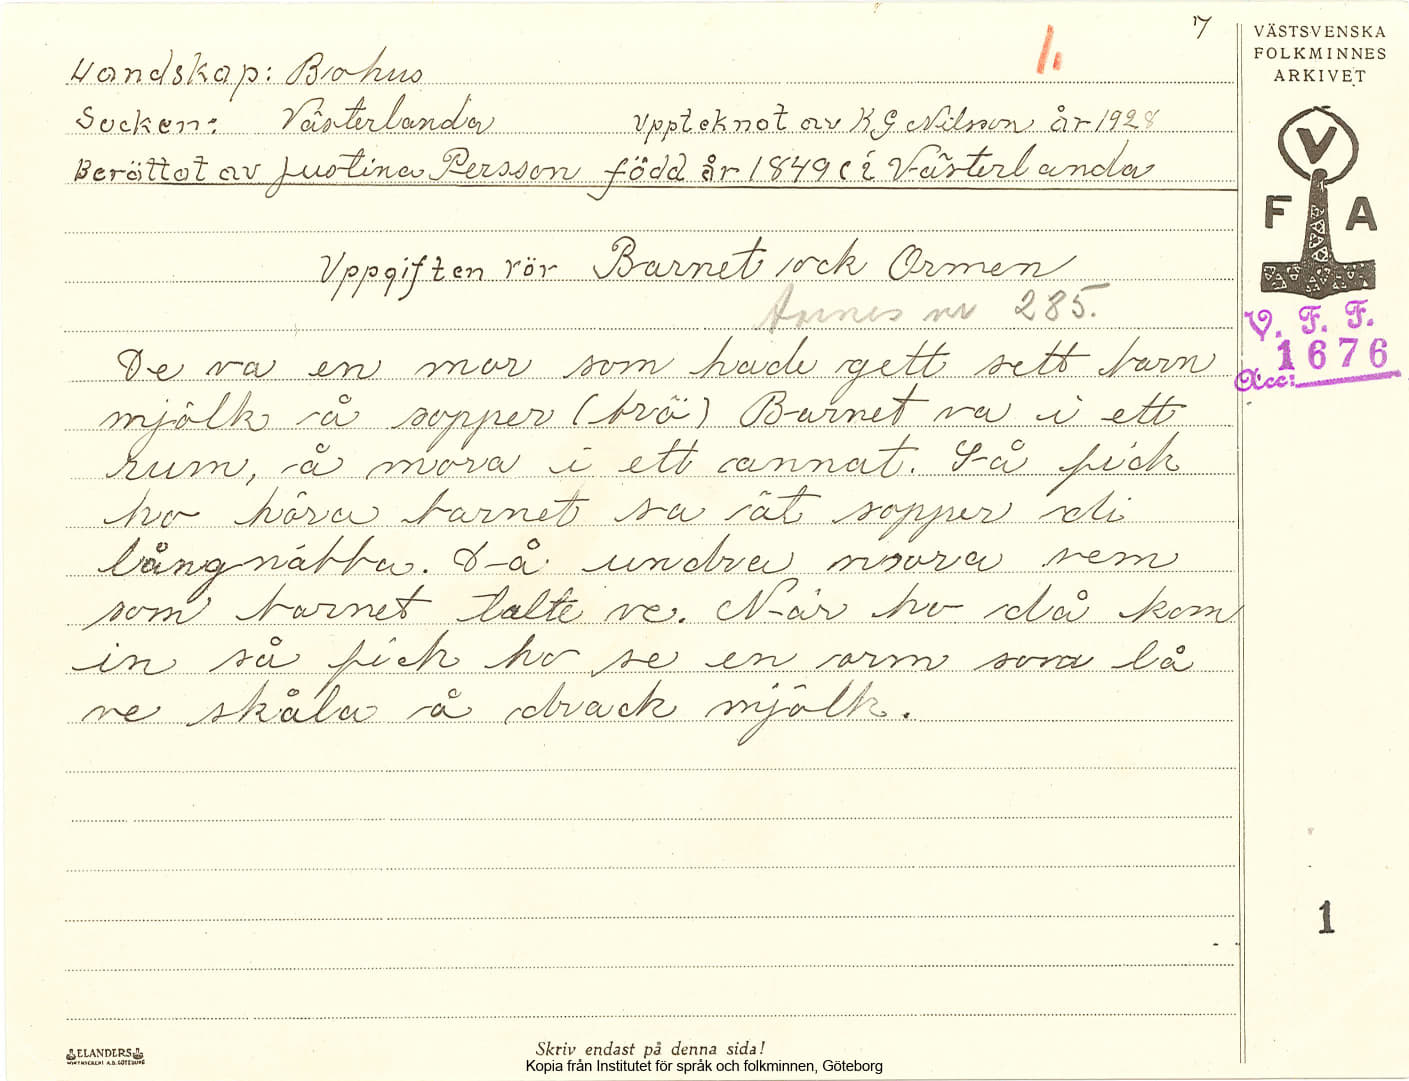 7
1.
VÄSTSVENSKA
FOLKMINNES
ARKIVET
Landskap: Bohus
Socken: Västerlanda Upptecknat av K G Nilsson år 1928
Berättat av Justina Persson född år 1849 i Västerlanda
V
F A
Uppgiften rör Barnet ock Ormen
nr 285.
V. F. F.
1676
Acc:
De va en mor som hade gett sett barn
mjölk å sopper (brö) Barnet va i ett
rum, å mora i ett annat. Så fick
ho höra barnet sa ät sopper di
långnäbba. Då undra mora vem
som barnet talte ve. När ho då kom
in så fick ho se en orm som lå
ve skåla å drack mjölk.
1
ELANDERS
Skriv endast på denna sida!
Kopia från Institutet för språk och folkminnen, Göteborg